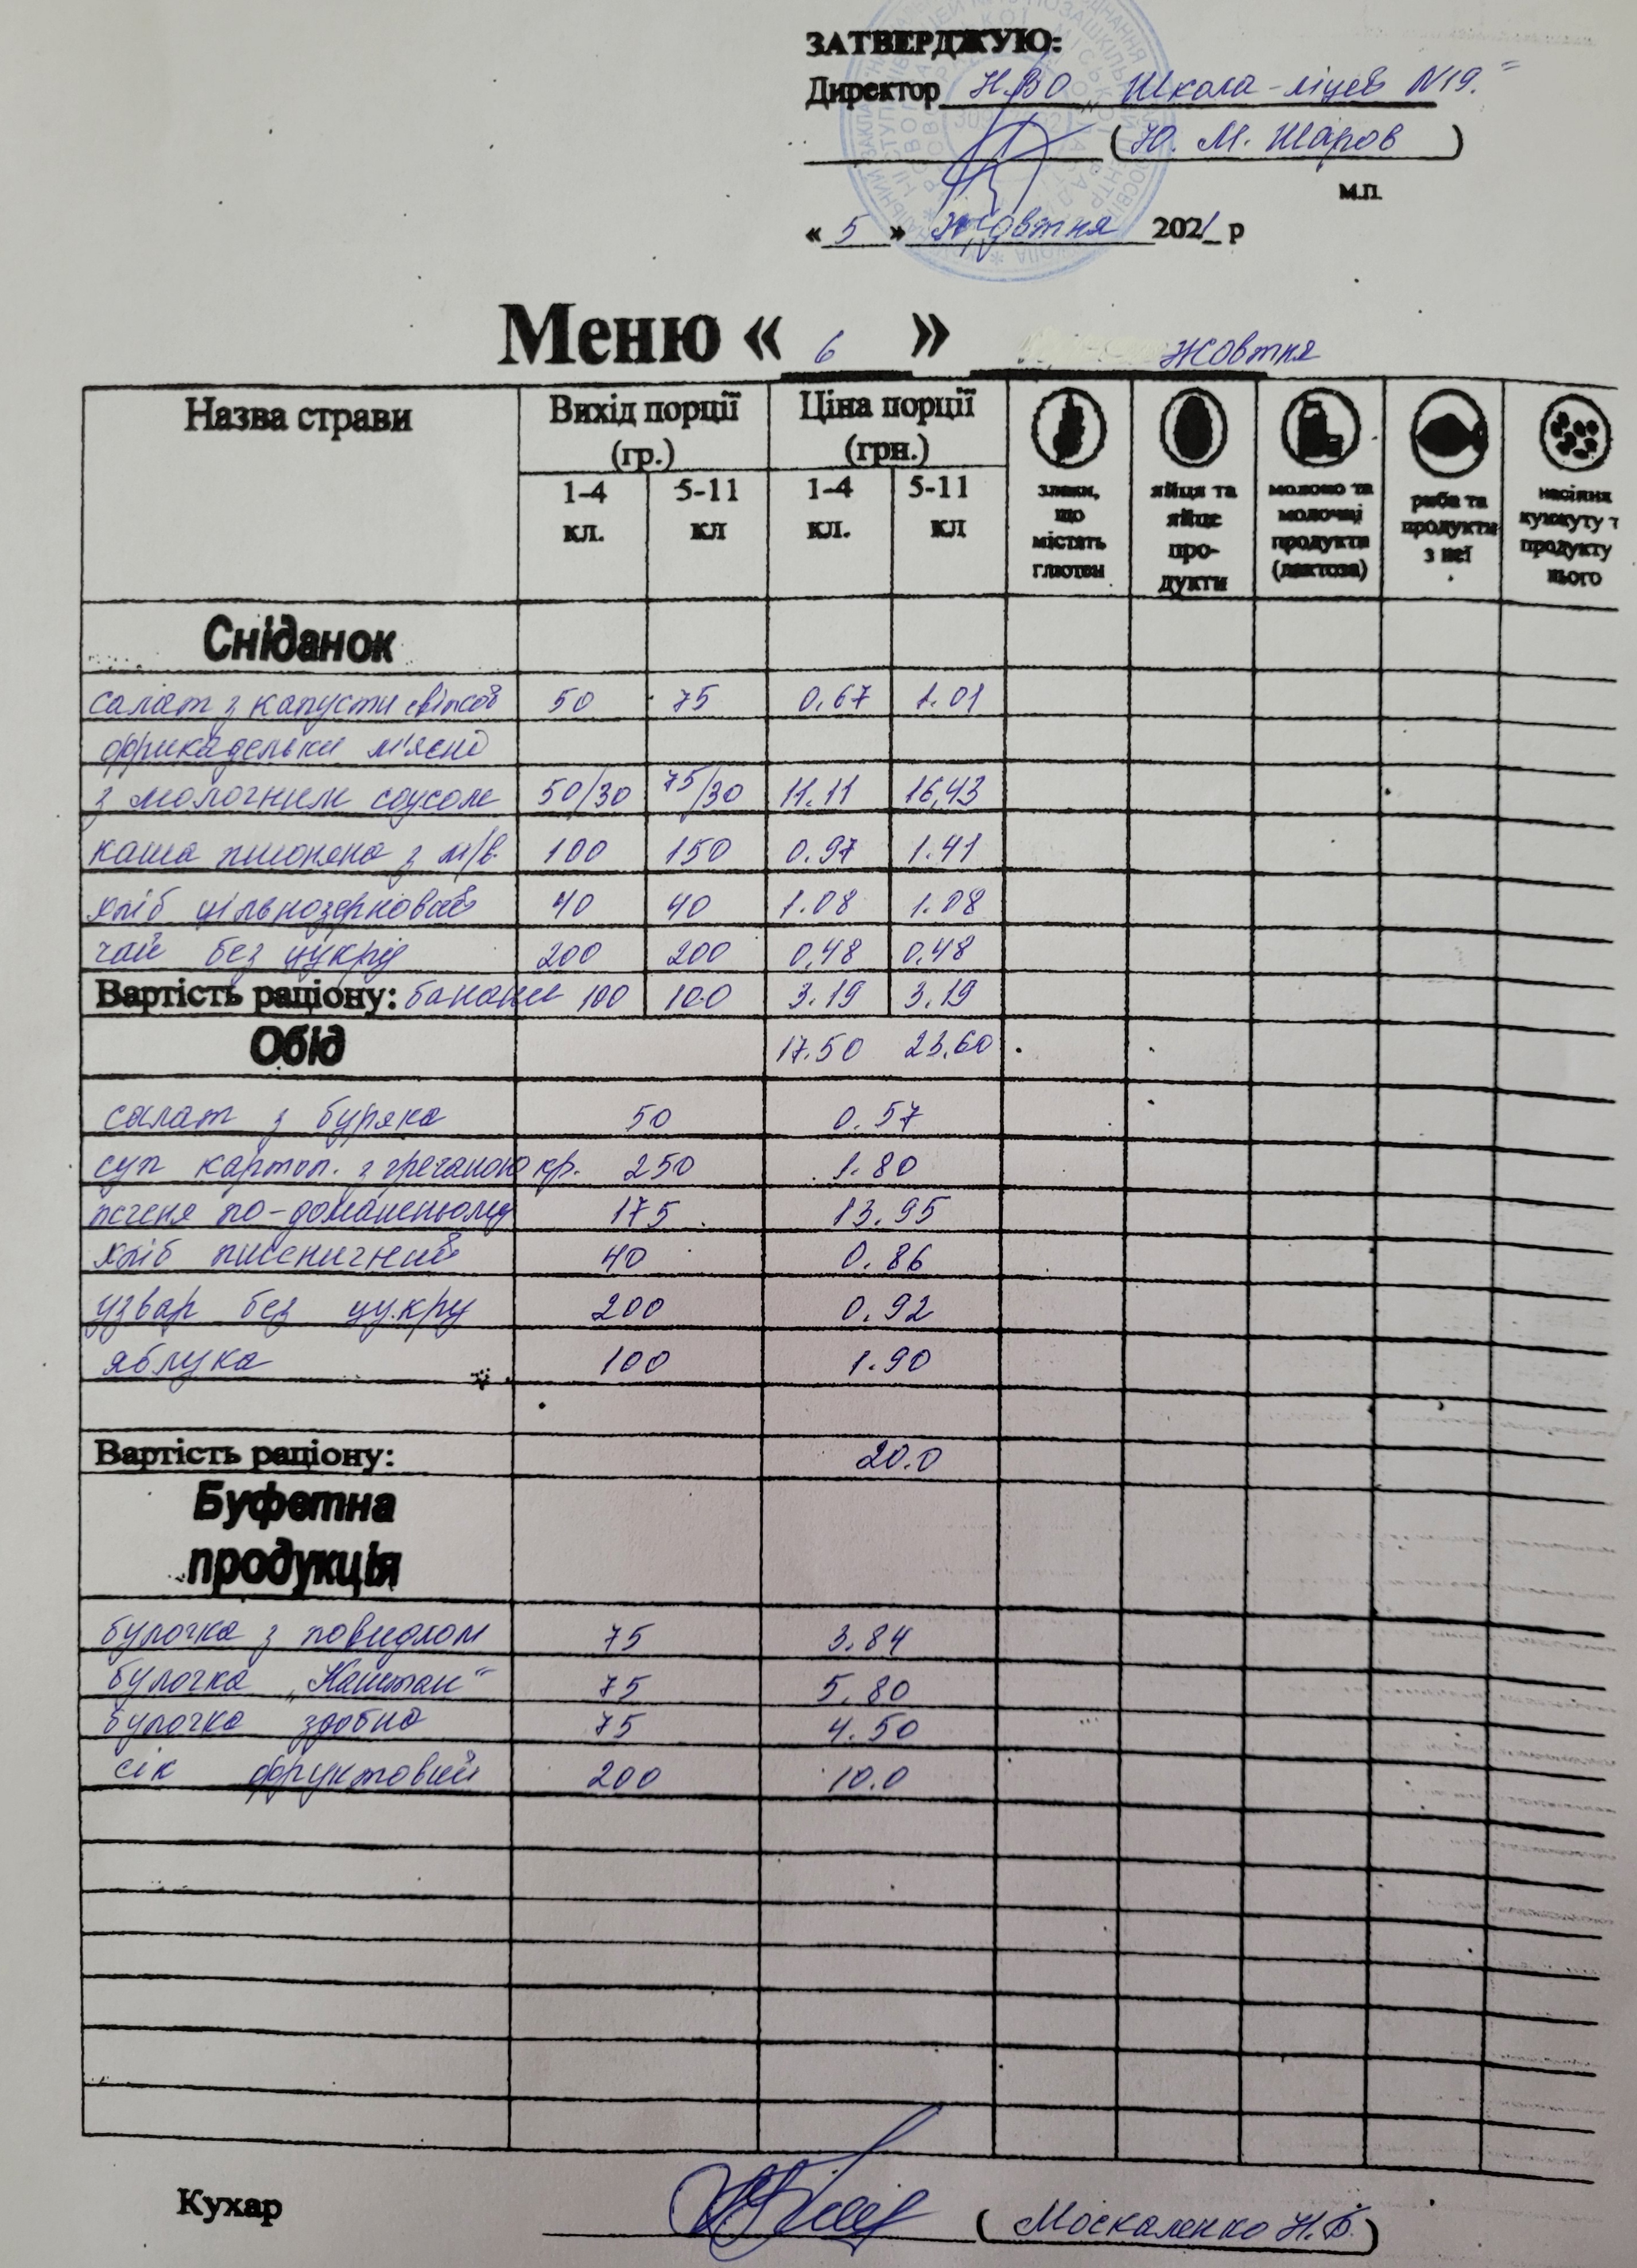 ЗАТВЕРДЖУЮ:
Директор НВО Школа-ліцей №19"
(Ю. М. Шаров)
м.п.
« 5 » Жовтня 2021 р
Меню « 6 » Жовтня
Назва страви Вихід порції (гр.) Ціна порції (грн.)
1-4 кл. 5-11 кл 1-4 кл. 5-11 кл
злаки, що містять глютен
яйця та яйце про-дукти
молоко та молочні продукти (лактоза)
риба та продукти з неї
насіння кунжуту т продукту нього
Сніданок
салат з капусти свіжої 50 75 0.67 1.01
фрикадельки м'ясні
з молочним соусом 50/30 75/30 11.11 16,43
каша пшоняна з м/в. 100 150 0.97 1.41
хліб цільнозерновий 40 40 1.08 1.08
чай без цукру 200 200 0,48 0,48
Вартість раціону: банани 100 100 3.19 3.19
Обід 17.50 23.60
салат з буряка 50 0.57
суп картоп. з гречаною кр. 250 1.80
печеня по-домашньому 175 13.95
хліб пшеничний 40 0.86
узвар без цукру 200 0.92
яблука 100 1.90
Вартість раціону: 20.0
Буфетна
продукція
булочка з повидлом 75 3.84
булочка „Каштан" 75 5.80
булочка здобна 75 4.50
сік фруктовий 200 10.0
Кухар (Москаленко Н.Б.)